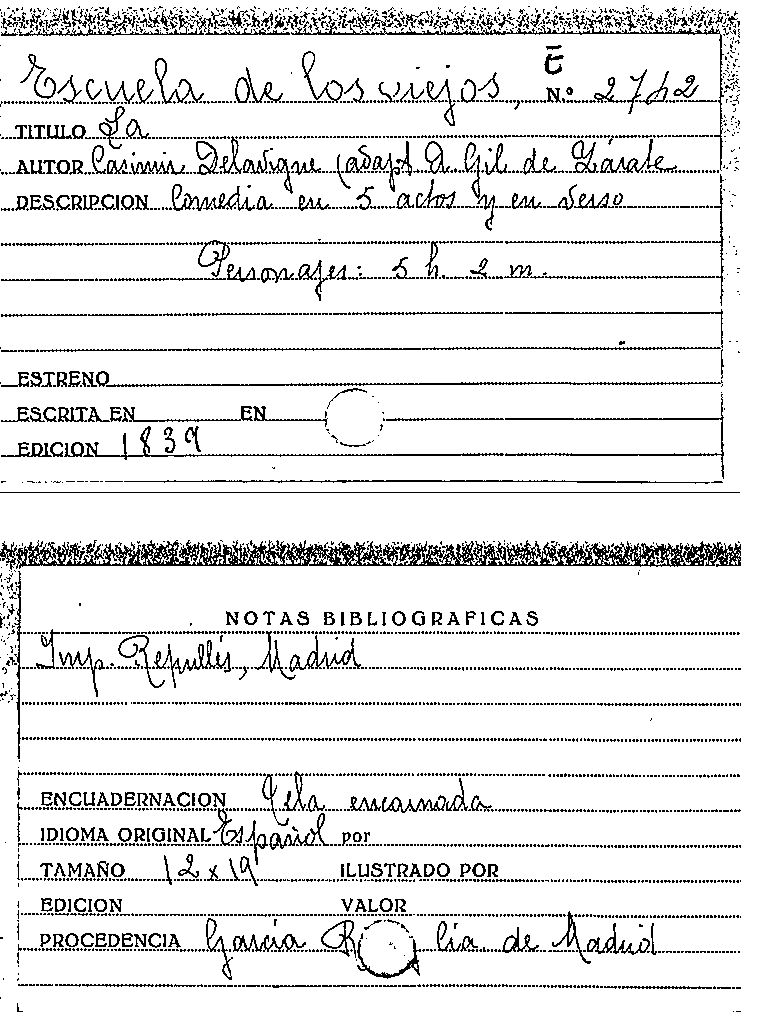 Escuela de los viejos, Ē
N.º 2742
TITULO La
AUTOR Casimir Delavigne (adapt A. Gil de Zárate
DESCRIPCION Comedia en 5 actos y en verso
Personajes: 5 h. 2 m.
ESTRENO
ESCRITA EN EN
EDICION 1839
NOTAS BIBLIOGRAFICAS
Imp. Repullés, Madrid
ENCUADERNACION Tela encarnada
IDIOMA ORIGINAL Español por
TAMAÑO 12 x 19 ILUSTRADO POR
EDICION VALOR
PROCEDENCIA García lía. de Madrid